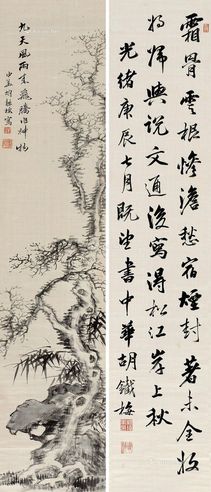 霜骨雲根慘澹愁宿煙封著未全收
將歸與說文通後寫得松江岸上秋
光緒庚辰七月既望書中華胡鐵梅
九天風雨來飛騰作神物
中華胡鐵梅寫